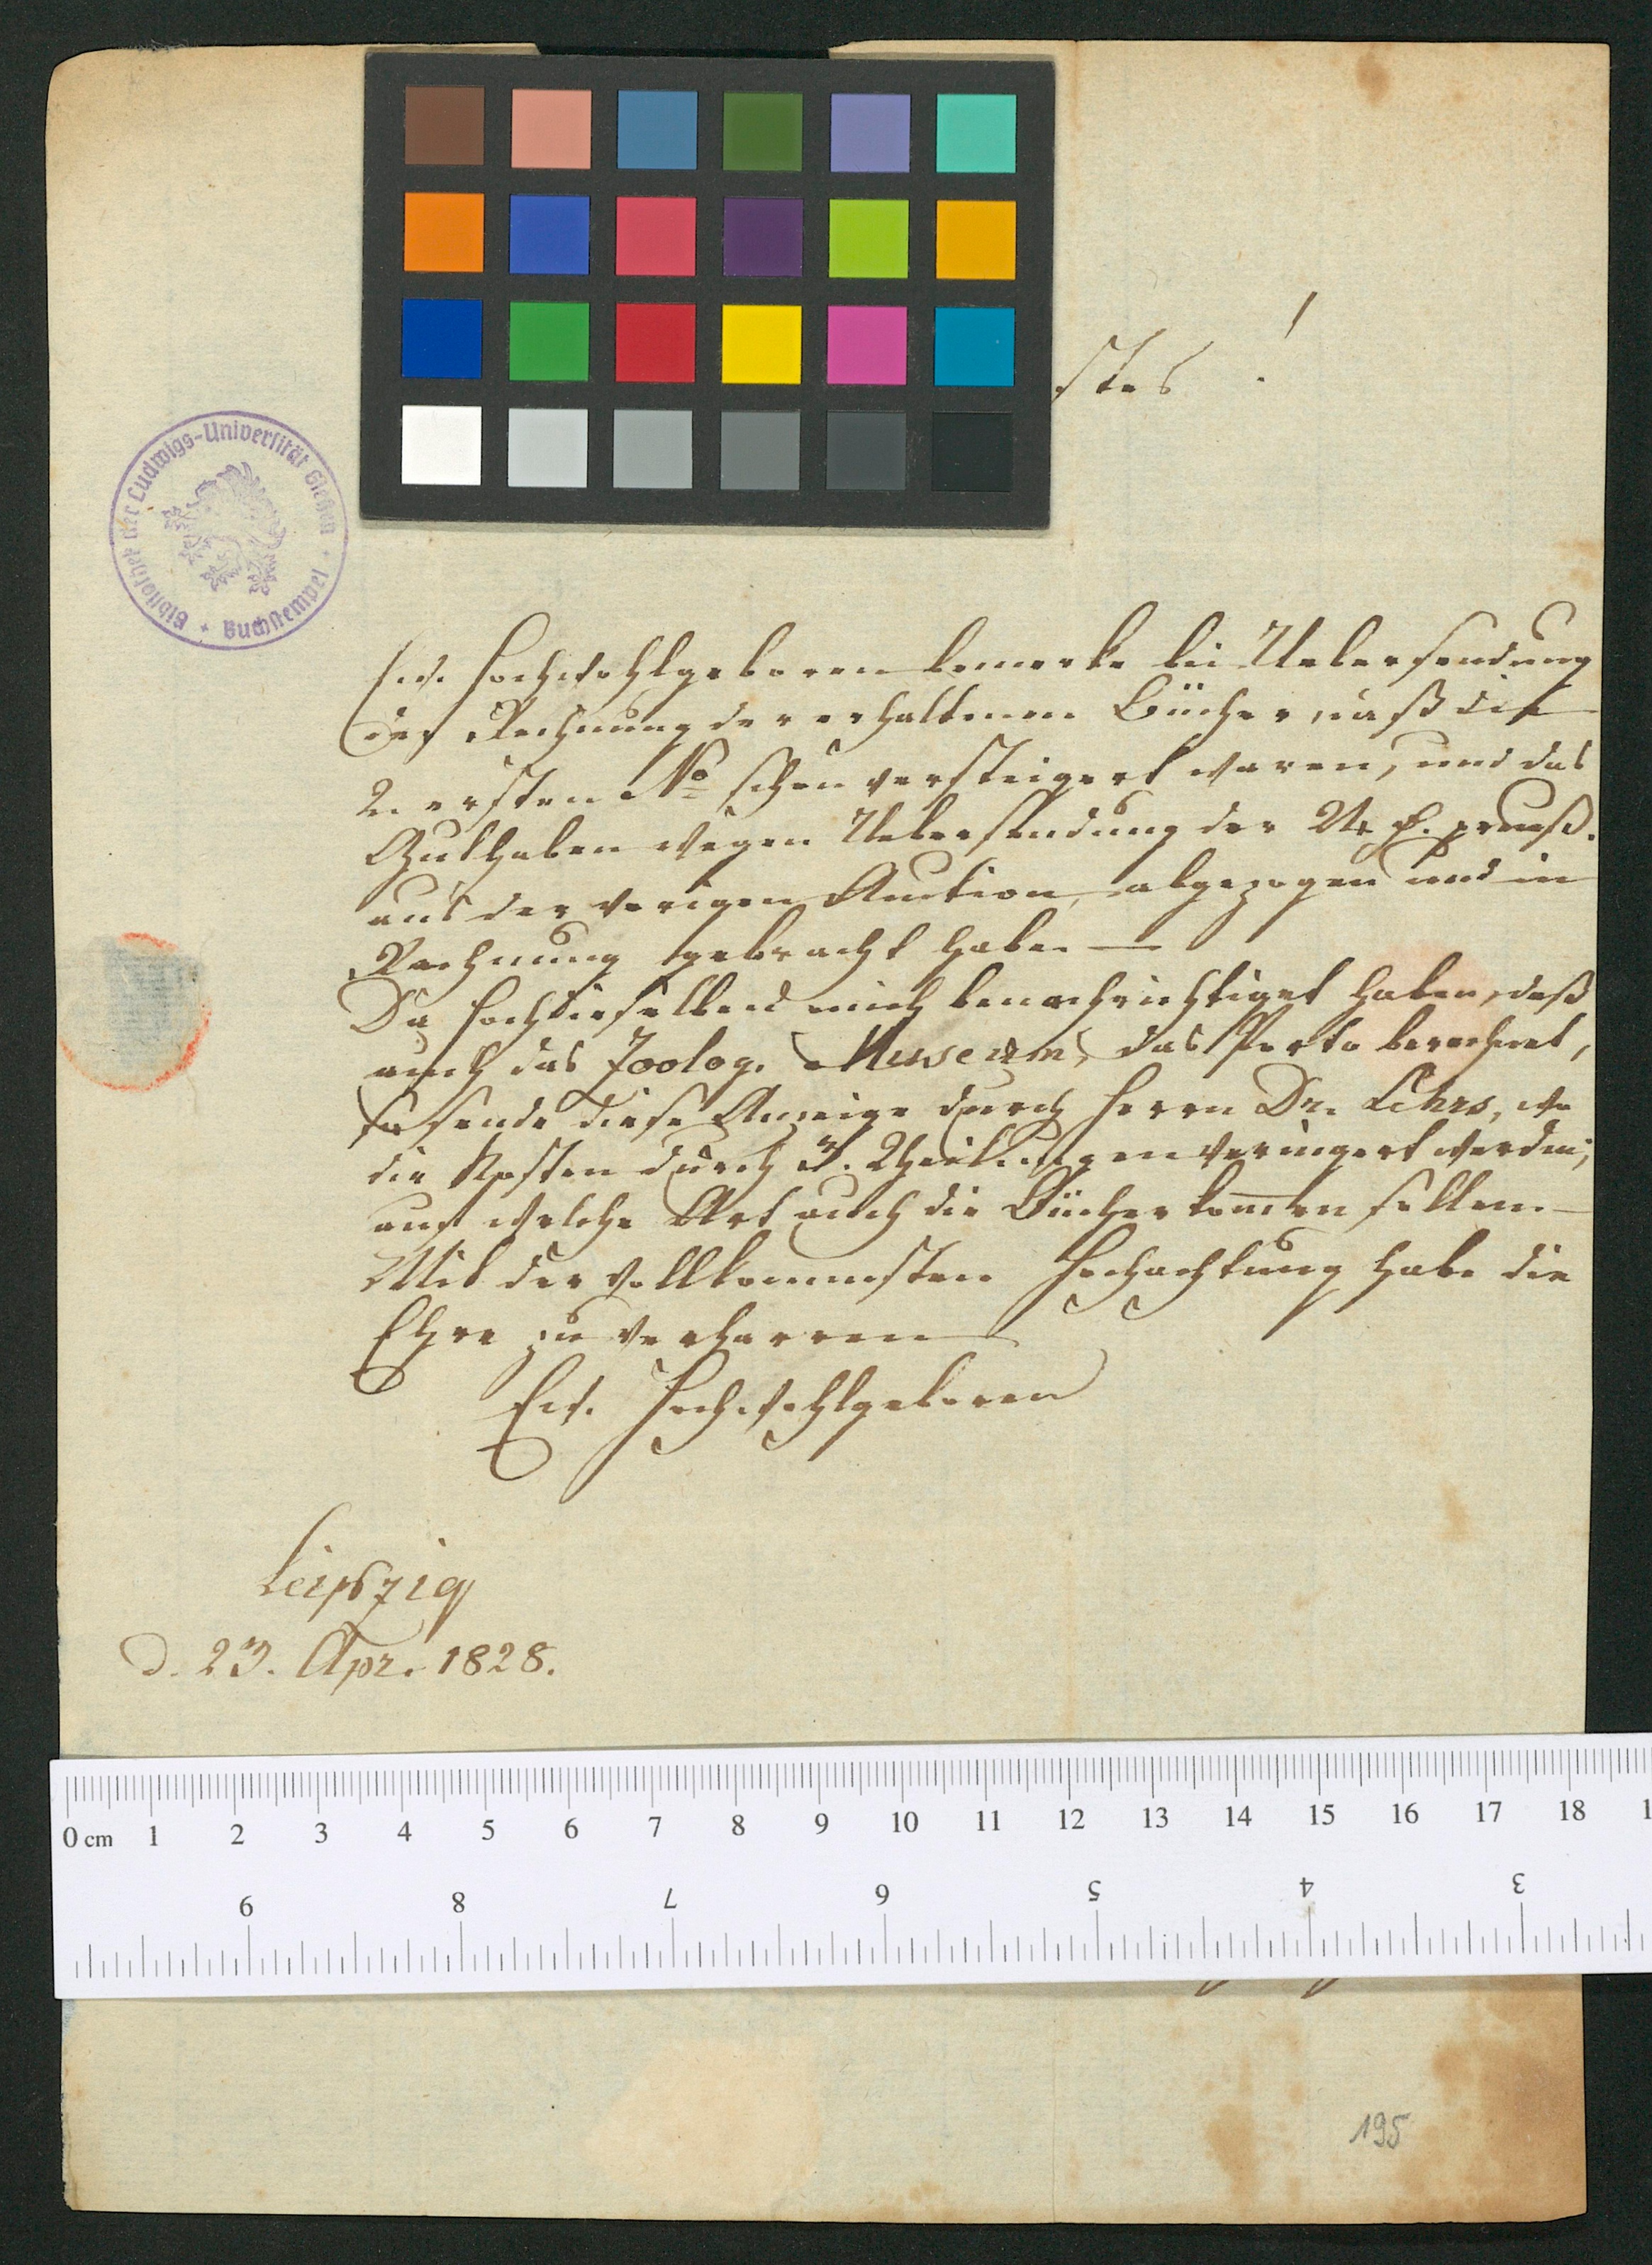 stes !
Bibliothek der Ludwigs-Universität Gießen * Buchstempel *
Ew. Hochwohlgeboren bemerke bei Uebersendung
der Rechnung der erhaltenen Bücher, daß die
2. ersten No schon versteigert waren, und das
Guthaben wegen Uebersendung der preuß.
aus der vorigen Auction, abgezogen und in
Rechnung gebracht habe. —
Da Hochdieselben mich benachrichtiget haben, daß
auch das Zoolog. Museum, das Porto berechnet,
so sende diese Anzeige durch Herrn Dr. Lehrs, wo
die Kosten durch 3. Theilungen veringert werden;
auf welche Art auch die Bücher kommen sollen. —
Mit der vollkommensten Hochachtung habe die
Ehre zu verharren
Ew. Hochwohlgeboren
Leipzig
d. 23. Apr. 1828.
0 cm 1 2 3 4 5 6 7 8 9 10 11 12 13 14 15 16 17 18 1
9 8 7 6 5 4 3
195